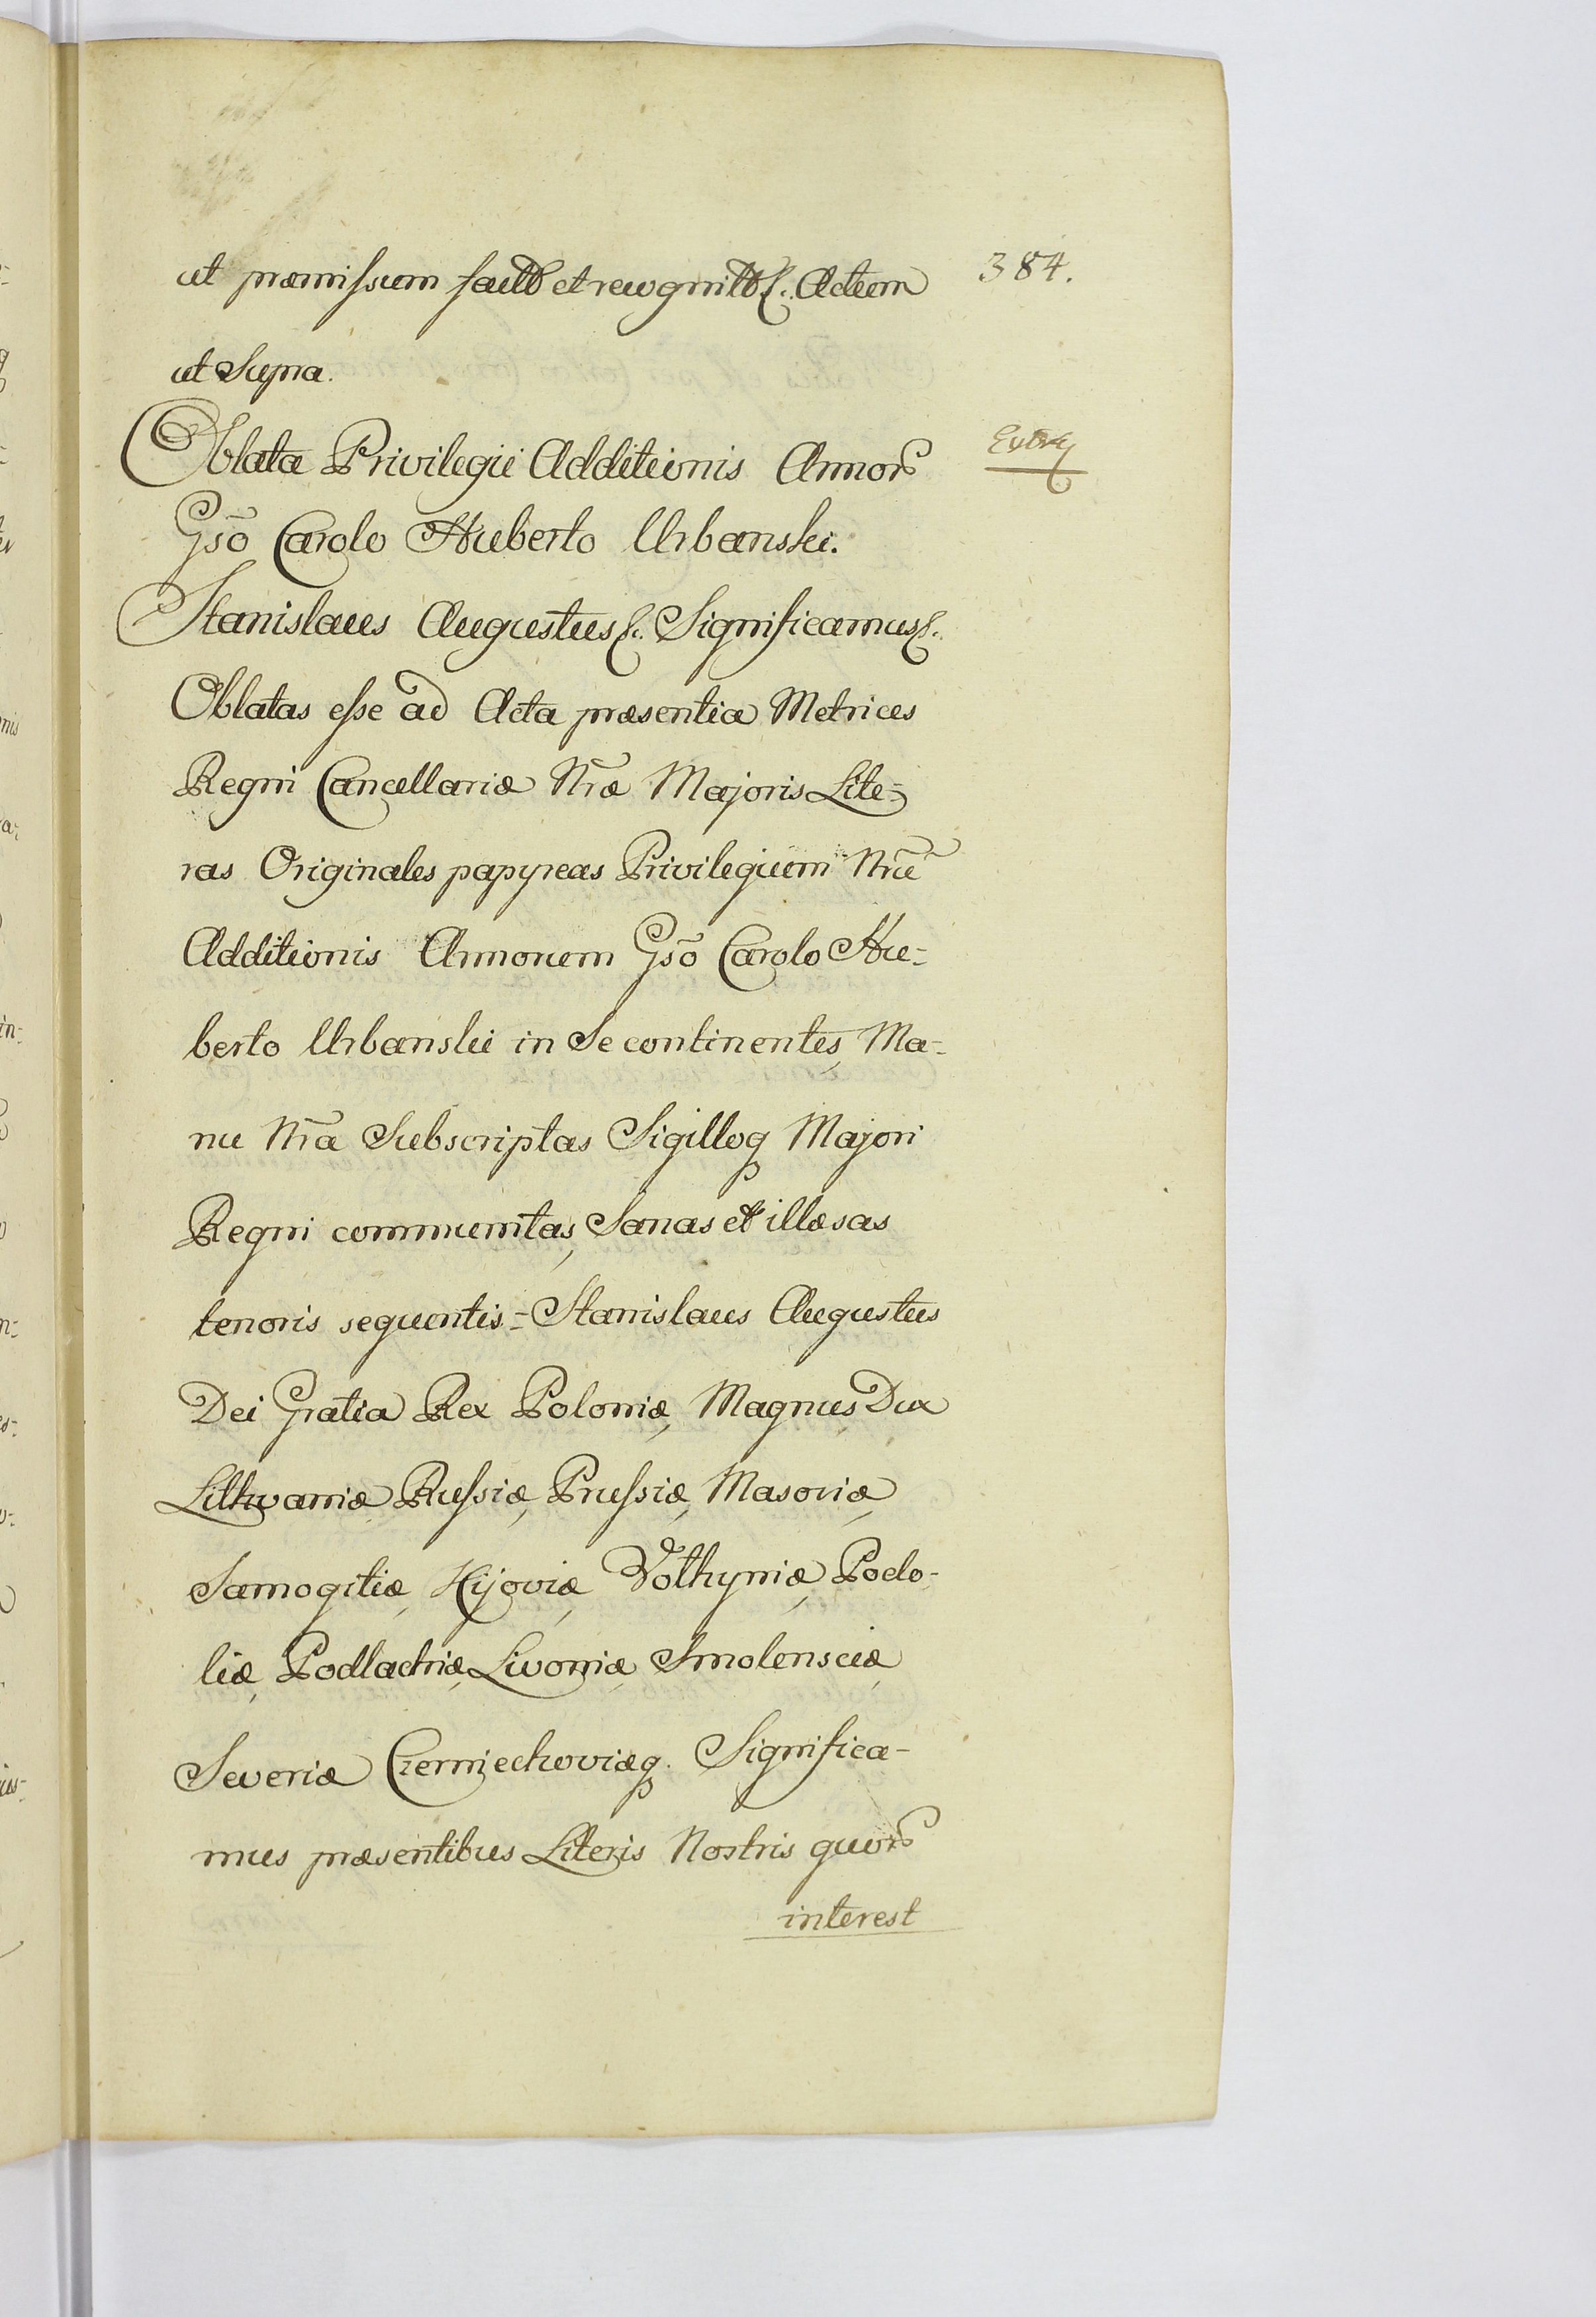 384.
ut præmissum factt et recognitt &c. Actum
ut Supra.
Extr
Oblata Privilegii Additionis Annor
Gsō Carolo Huberto Urbanski.
Stanislaus Augustus &c. Significamus &c.
Oblatas esse ad Acta præsentia Metrices
Regni Cancellariæ Nræ Majoris Lite=
ras Originales papyreas Privilegium Nrū
Additionis Annorum Gsō Carolo Hu=
berto Urbanski in Se continentes, Ma=
nu Nrā Subscriptas Sigilloq Majori
Regni communitas, Sanas et illæsas
tenoris sequentis = Stanislaus Augustus
Dei Gratia Rex Poloniæ, Magnus Dux
Lithvaniæ, Russiæ, Prussiæ, Masoviæ,
Samogitiæ, Kijoviæ, Volhyniæ, Podo-
liæ, Podlachiæ, Livoniæ, Smolensciæ,
Severiæ Czerniechoviæq. Significa-
mus præsentibus Literis Nostris quor
interest